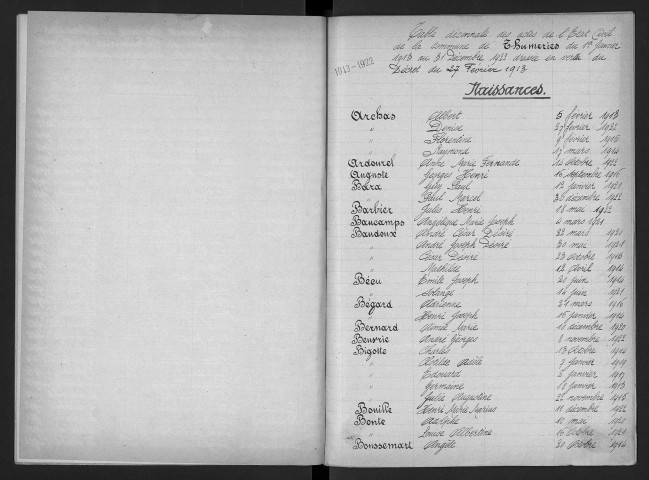 Table décennale des actes de l'Etat Civil
de la commune de Thumeries du 1er Janvier
1913 au 31 Décembre 1922 dressée en vertu du
Décret du 27 Février 1913
1913-1922
Naissances.
Archas Albert 5 février 1913
" Denise février 1922
" Florentine 9 février 1916
" Raymond mars 1914
Ardourel Anne Marie Fernande 14 Octobre 1922
Auguste Georges Henri 16 Septembre 1916
Bara Paul 12 janvier 1921
" Paul Marcel décembre 1922
Barbier Jules Henri 18 mai 1922
Baucamps Angélique Marie Joseph 4 mars 1921
Baudoux André César Désiré 22 mars 1921
" André Joseph Désiré 30 mai 1921
" César Désiré 23 Octobre 1913
" Mathilde 12 Avril 1914
Bécu Emile Joseph 20 juin 1914
" Solange 14 juin 1921
Bégard 27 mars 1916
" Henri Joseph 16 janvier 1914
Bernard Aimée Marie 11 décembre 1920
Beuvrie André Georges 8 novembre 1922
Bigotte Charles 13 Octobre 1914
" Adèle 7 janvier 1919
" Edouard 2 janvier 1917
" Germaine 11 janvier 1913
" Julia Augustine 22 novembre 1915
Bouille Henri Marius 11 décembre 1922
Bonte Adolphe 10 mai 1920
" Louise Albertine 16 Octobre 1921
Boussemart Angèle 30 Octobre 1914